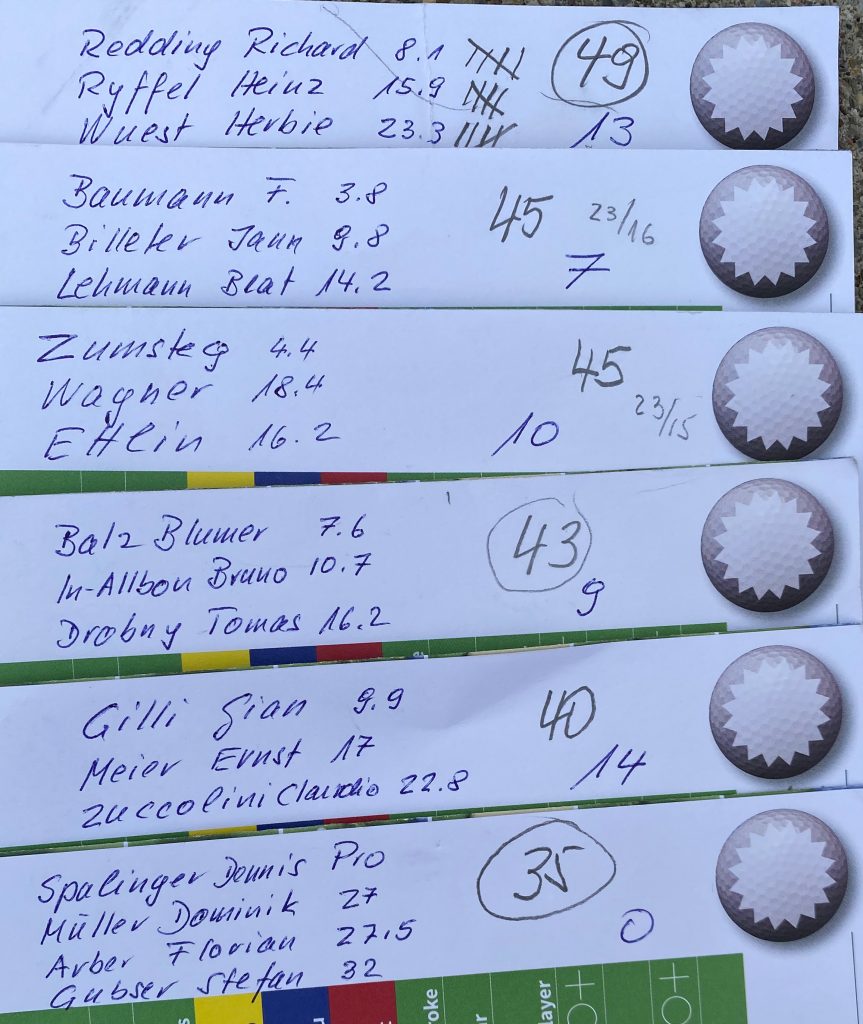 Redding Richard 8.1 49
Ryffel Heinz 15.9
Wuest Herbie 23.3 13
Baumann F. 3.8 45 23/16
Billeter Jann 9.8
Lehmann Beat 14.2 7
Zumsteg 4.4 45
Wagner 18.4 23/15
Ettlin 16.2 10
Balz Blumer 7.6 43
In-Allbon Bruno 10.7
Drobny Tomas 16.2 9
Gilli Gian 9.9 40
Meier Ernst 17 14
Zuccolini Claudio 22.8
Spalinger Dennis Pro 35
Müller Dominik 27
Arber Florian 27.5 0
Gubser Stefan 32